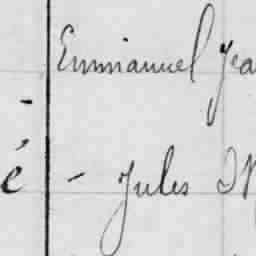 Emmanuel Jea
é - Jules